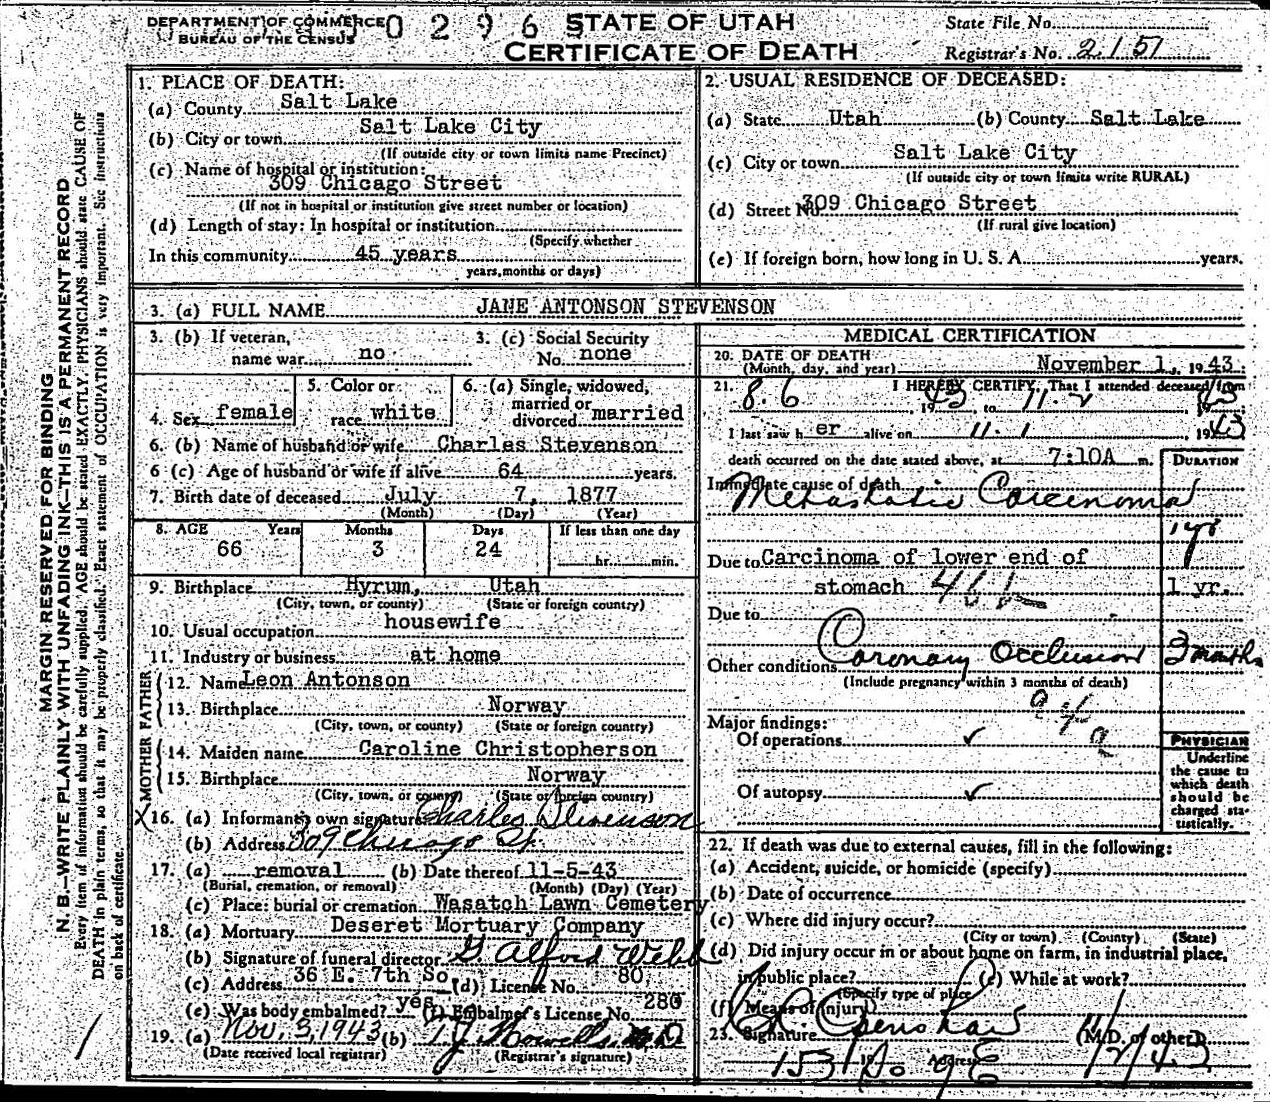 DEPARTMENT OF COMMERCE
BUREAU OF THE CENSUS
0 2 9 6
STATE OF UTAH
CERTIFICATE OF DEATH
State File No.
Registrar's No. 2151
MARGIN RESERVED FOR BINDING
N. B.—WRITE PLAINLY WITH UNFADING INK—THIS IS A PERMANENT RECORD
Every item of information should be carefully supplied. AGE should be stated EXACTLY. PHYSICIANS should state CAUSE OF
DEATH in plain terms, so that it may be properly classified. Exact statement of OCCUPATION is very important. See Instructions
on back of certificate.
1. PLACE OF DEATH:
(a) County Salt Lake
(b) City or town Salt Lake City
(If outside city or town limits name Precinct)
(c) Name of hospital or institution:
309 Chicago Street
(If not in hospital or institution give street number or location)
(d) Length of stay: In hospital or institution
(Specify whether
In this community 45 years
years, months or days)
2. USUAL RESIDENCE OF DECEASED:
(a) State Utah (b) County Salt Lake
(c) City or town Salt Lake City
(If outside city or town limits write RURAL)
(d) Street No. 309 Chicago Street
(If rural give location)
(e) If foreign born, how long in U. S. A. years.
3. (a) FULL NAME JANE ANTONSON STEVENSON
3. (b) If veteran, name war no
3. (c) Social Security No. none
4. Sex female
5. Color or race white
6. (a) Single, widowed, married or divorced married
6. (b) Name of husband or wife Charles Stevenson
6 (c) Age of husband or wife if alive 64 years.
7. Birth date of deceased July 7, 1877
(Month) (Day) (Year)
8. AGE Years Months Days If less than one day
66 3 24 hr. min.
9. Birthplace Hyrum, Utah
(City, town, or county) (State or foreign country)
10. Usual occupation housewife
11. Industry or business at home
FATHER
12. Name Leon Antonson
13. Birthplace Norway
(City, town, or county) (State or foreign country)
MOTHER
14. Maiden name Caroline Christopherson
15. Birthplace Norway
(City, town, or county) (State or foreign country)
X 16. (a) Informant's own signature Charles Stevenson
(b) Address 309 Chicago St.
17. (a) removal (b) Date thereof 11-5-43
(Burial, cremation, or removal) (Month) (Day) (Year)
(c) Place: burial or cremation Wasatch Lawn Cemetery
18. (a) Mortuary Deseret Mortuary Company
(b) Signature of funeral director G. Alford Webb
(c) Address 36 E. 7th So (d) License No. 80
(e) Was body embalmed? yes (f) Embalmer's License No. 280
19. (a) Nov. 3, 1943 (b) T.J. Howells M.D
(Date received local registrar) (Registrar's signature)
MEDICAL CERTIFICATION
20. DATE OF DEATH
(Month, day, and year) November 1, 1943.
21. I HEREBY CERTIFY, That I attended deceased from
8.6, 1943 to 11.2, 1943
I last saw h er alive on 11.1, 1943
death occurred on the date stated above, at 7:10A m.
DURATION
Immediate cause of death
Metastatic Carcinoma
1 yr
Due to Carcinoma of lower end of
stomach 46b 1 yr.
Due to
Other conditions Coronary Occlusion 3 months
(Include pregnancy within 3 months of death)
Major findings:
Of operations ✓
Of autopsy ✓
PHYSICIAN
Underline
the cause to
which death
should be
charged sta-
tistically.
22. If death was due to external causes, fill in the following:
(a) Accident, suicide, or homicide (specify)
(b) Date of occurrence
(c) Where did injury occur?
(City or town) (County) (State)
(d) Did injury occur in or about home on farm, in industrial place,
in public place? (e) While at work?
(Specify type of place
(f) Means of injury
23. Signature Openshaw (M.D. of other)
Address 11/2/43